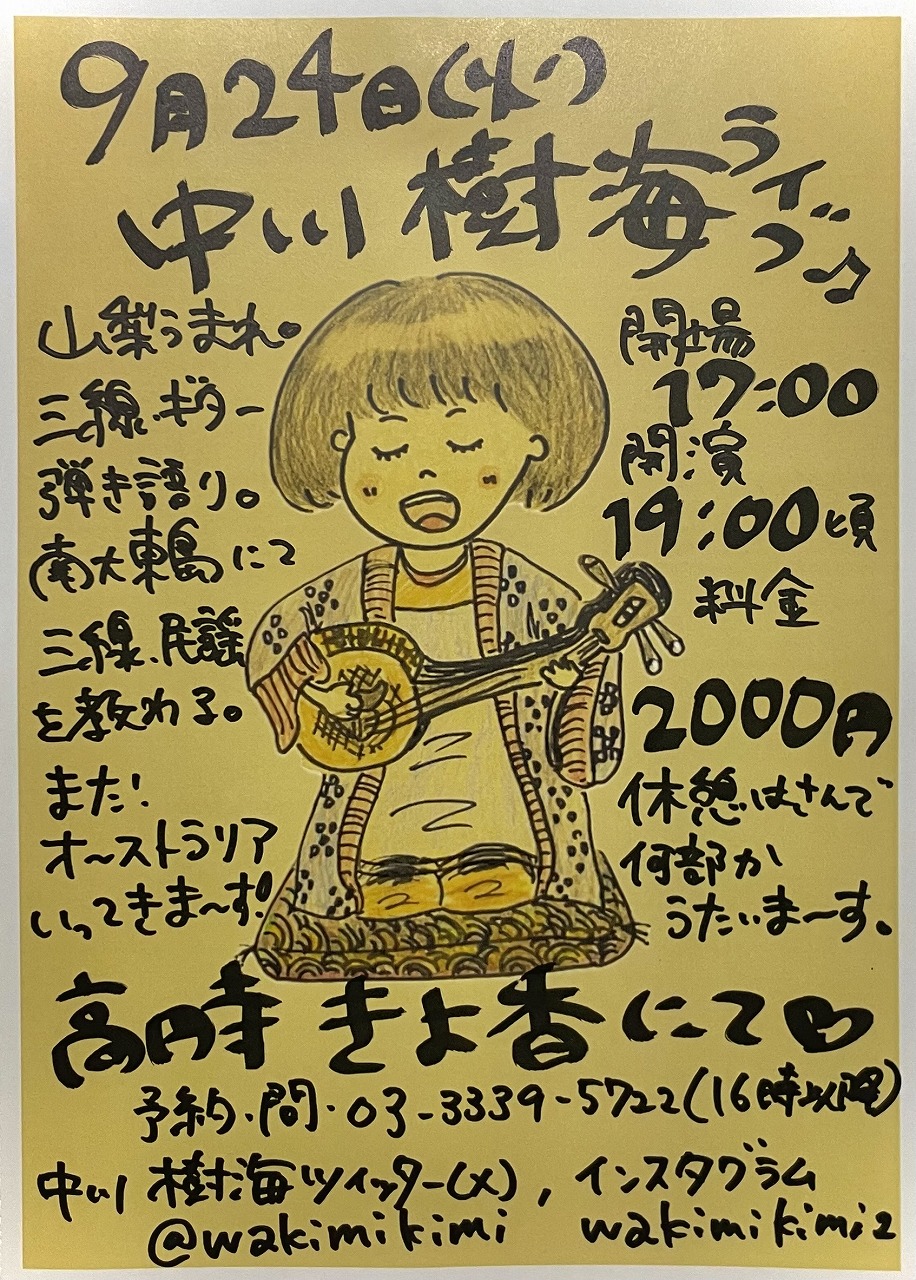 9月24日(火)
中川樹海ライブ♪
山梨うまれ。
三線、ギター
弾き語り。
南大東島にて
三線、民謡
を教わる。
また!
オ〜ストラリア
いってきま〜す!
開場
17:00
開演
19:00頃
料金
2000円
休憩はさんで
何部か
うたいま〜す。
高円寺 きよ香にて♡
予約・問・03-3339-5722(16時以降)
中川 樹海ツイッター(X), インスタグラム
@wakimikimi wakimikimi2